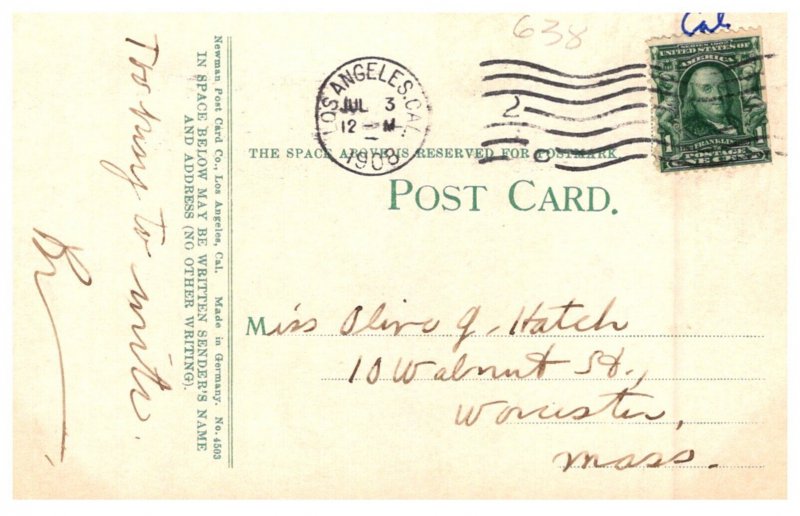 Cal
638
SERIES 1902
UNITED STATES OF
AMERICA
FRANKLIN
POSTAGE
LOS ANGELES, CAL.
JUL 3
12 - M
1908
2
THE SPACE ABOVE IS RESERVED FOR POSTMARK
POST CARD.
Miss Olive J. Hatch
10 Walnut St.,
Worcester,
Mass.
Newman Post Card Co., Los Angeles, Cal. Made in Germany. No. 4503
IN SPACE BELOW MAY BE WRITTEN SENDER'S NAME
AND ADDRESS (NO OTHER WRITING).
Too busy to write.